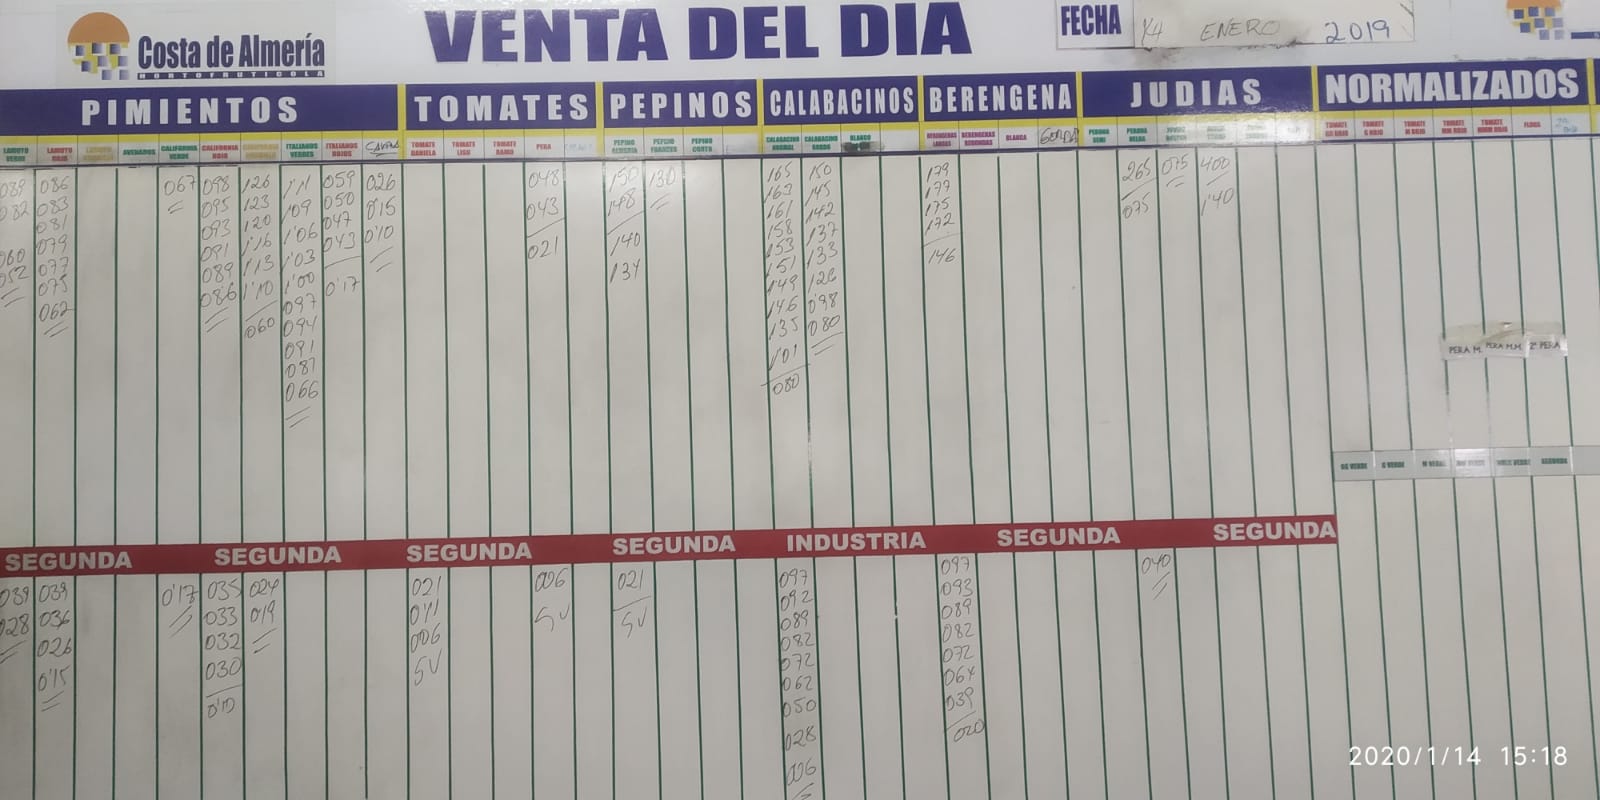 Costa de Almería
HORTOFRUTICOLA
VENTA DEL DIA
FECHA 14 ENERO 2019
PIMIENTOS TOMATES PEPINOS CALABACINOS BERENGENA JUDIAS NORMALIZADOS
LAMUYO VERDE LAMUYO ROJO ASURADOS CALIFORNIA VERDE CALIFORNIA ROJO ITALIANOS VERDES ITALIANOS ROJOS TOMATE DANIELA TOMATE LISO TOMATE RAMO PERA PEPINO ALMERIA PEPINO FRANCES PEPINO CORTO CALABACINO NORMAL CALABACINO GORDO BLANCO BERENGENAS LARGAS BERENGENAS REDONDAS BLANCA GORDA PERONA SEMI PERONA HELDA
089 086 067 098 126 1'11 059 026 048 150 130 165 150 179 265 075 400
082 083 095 123 1'09 050 0'15 043 148 163 145 177 075 1'40
081 093 120 1'06 047 0'10 021 140 161 142 175
060 079 091 1'16 1'03 043 134 158 137 172
052 077 089 1'13 1'00 0'17 153 133 146
075 086 1'10 097 151 126
062 060 094 149 098
091 146 080
087 135
066 1'01
080
PERA M. PERA M.M. 2ª PERA
GG VERDE G VERDE M VERDE MM VERDE SEGUNDA
SEGUNDA SEGUNDA SEGUNDA SEGUNDA INDUSTRIA SEGUNDA SEGUNDA
039 039 0'17 035 024 021 006 021 097 097 040
028 036 033 019 0'11 SV SV 092 093
026 032 006 089 089
0'15 030 SV 082 082
0'10 072 072
062 064
050 039
028 020
006
2020/1/14 15:18